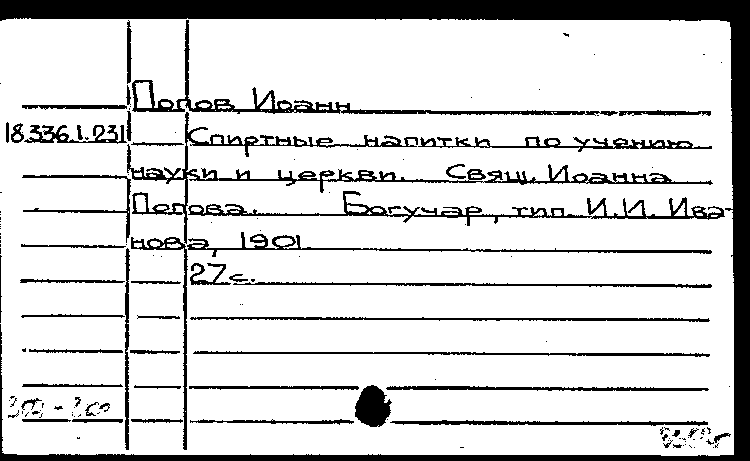 Попов Иоанн
18.336.1.231 Спиртные напитки по учению
науки и церкви. Свящ. Иоанна
Попова. Богучар, тип. И.И. Ива-
нова, 1901.
27 с.